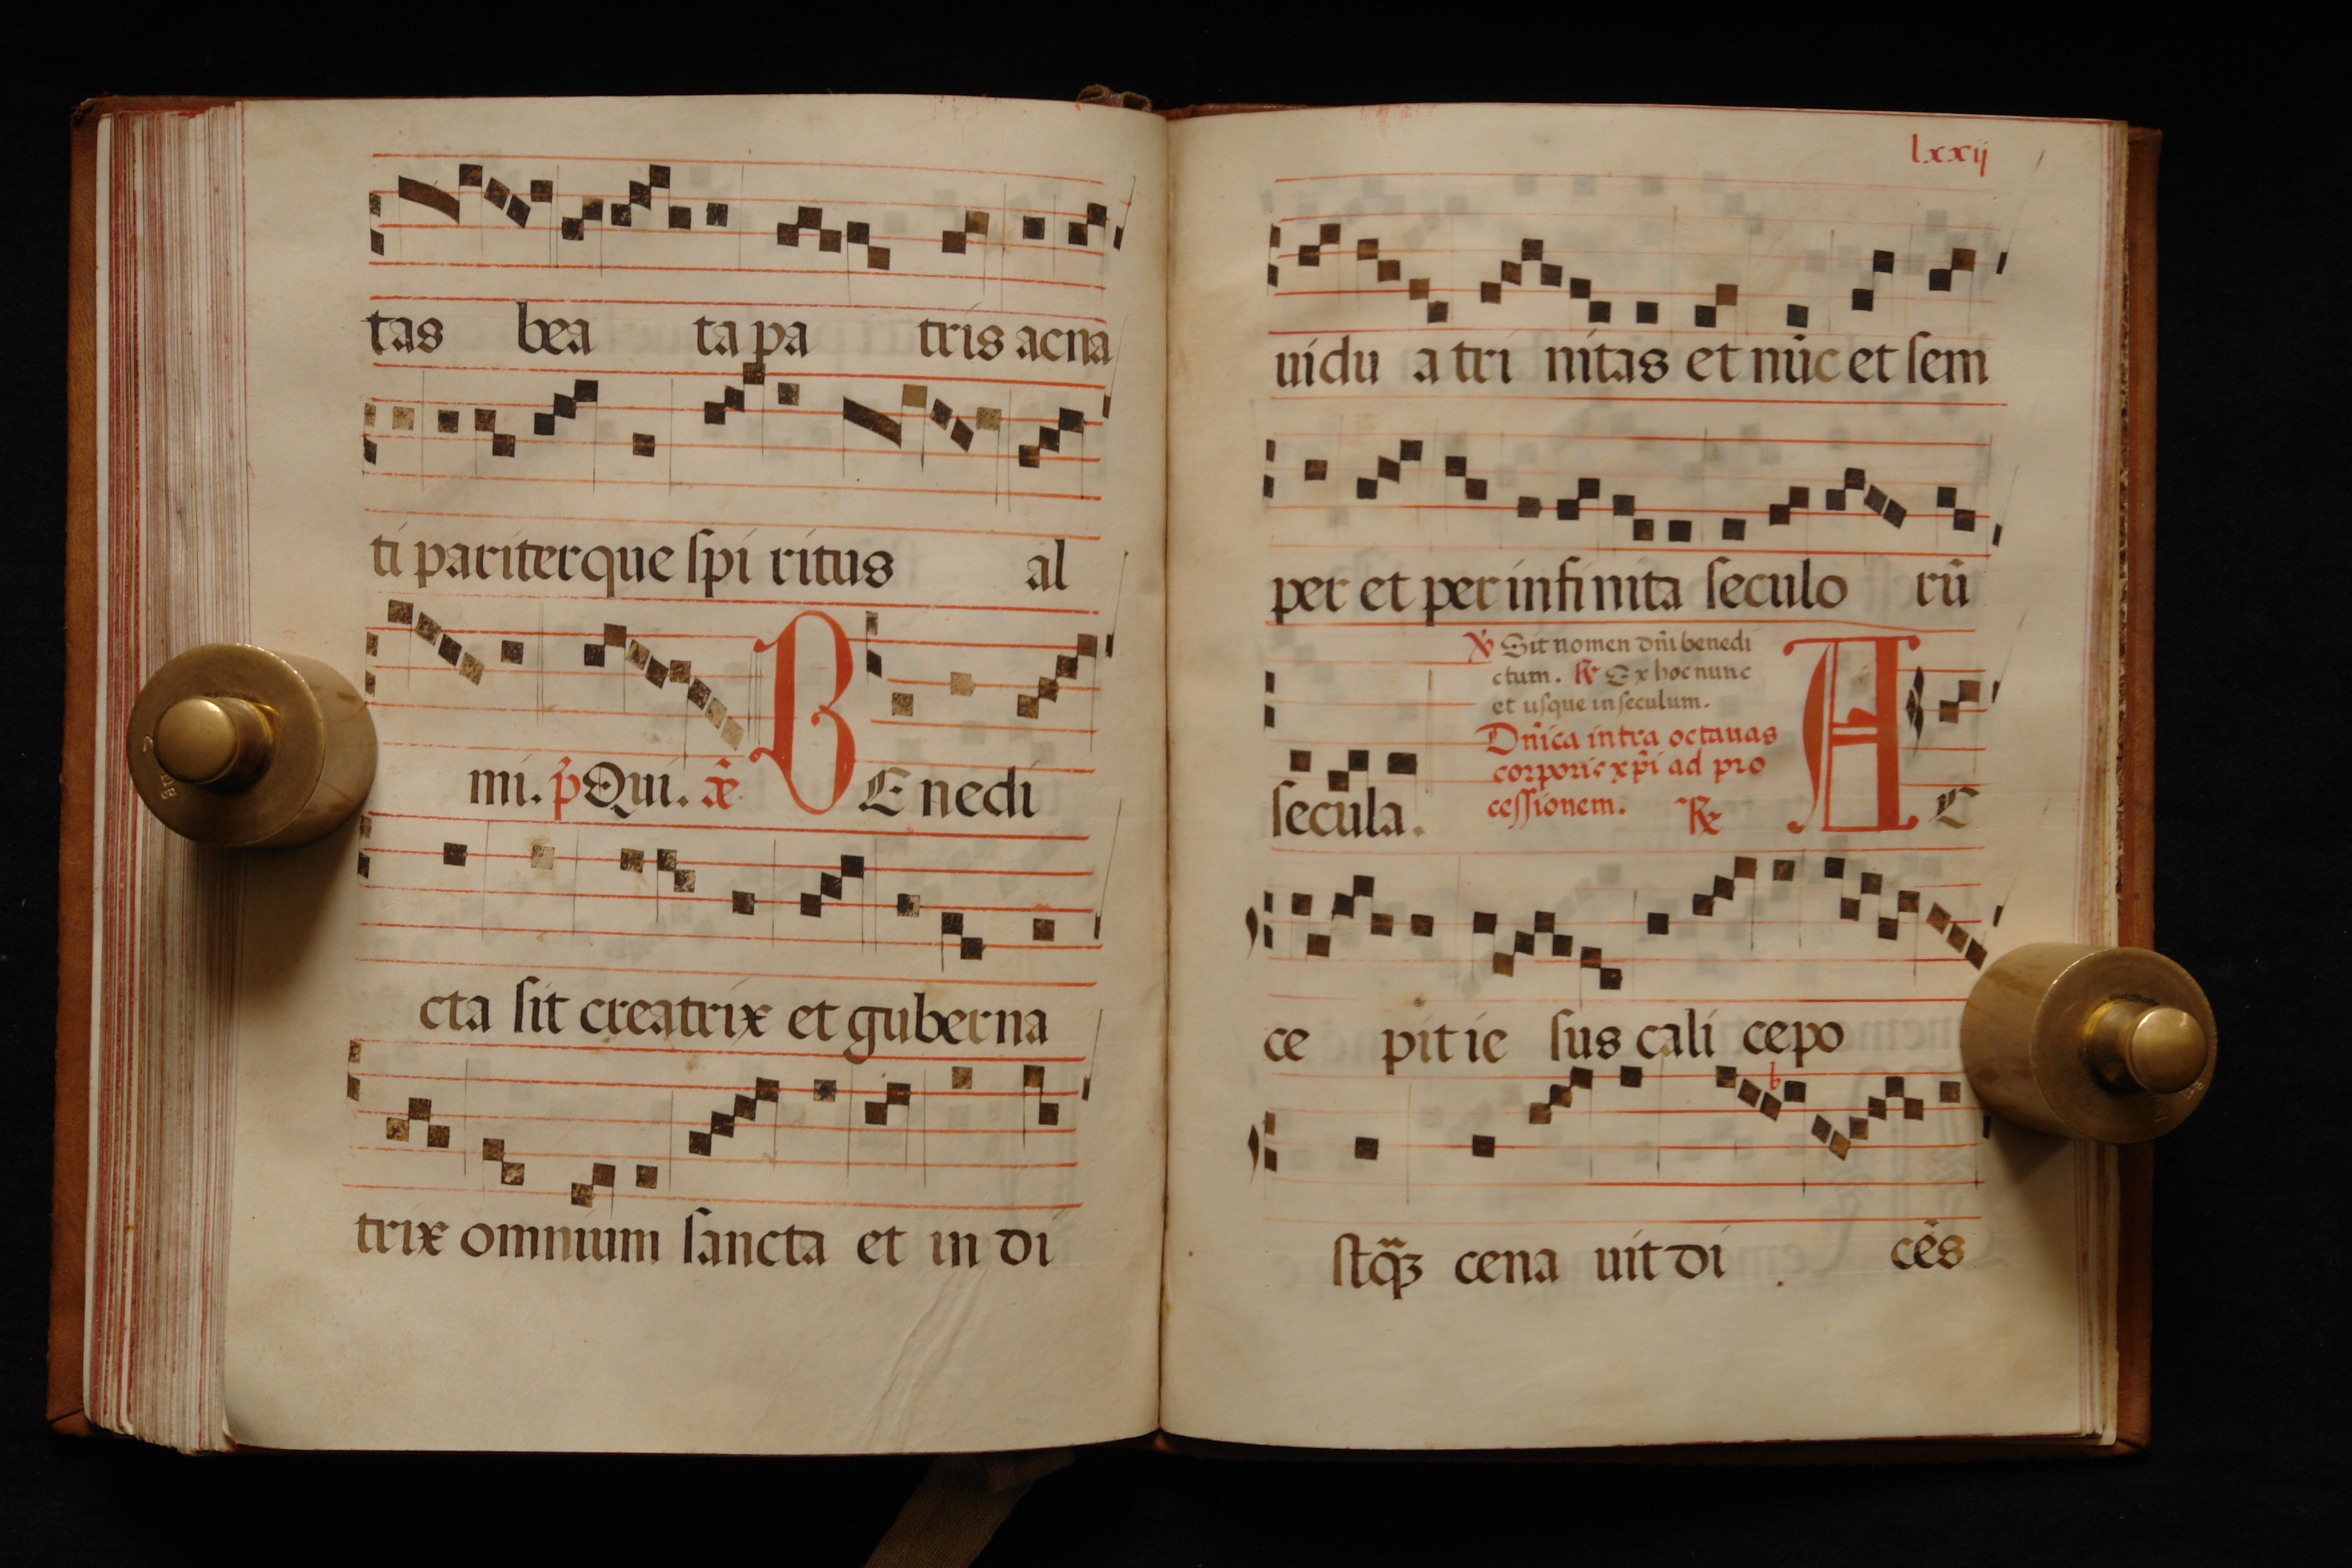 tas bea ta pa tris ac na
ti pariterque ſpi ritus al
mi. p̄ Qui. BE nedi
cta ſit creatrix et guberna
trix omnium ſancta et in di
lxxij
uidu a tri nitas et nūc et ſem
per et per infinita ſeculo rū
℣ Sit nomen dñi benedi
ctum. ℟ Ex hoc nunc
et uſque in ſeculum.
ſecula.
Dñica intra octauas
corporis xp̄i ad pro
ceſſionem. ℟
AC
ce pit ie ſus cali ce po
ſtq̃ꝫ cena uit di cẽs